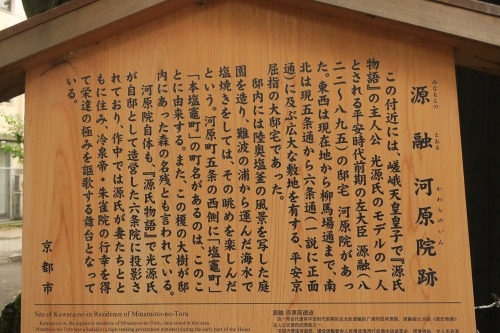 みなもとの とおる かわらのいん
源 融 河原院跡
この付近には、嵯峨天皇皇子で『源氏
物語』の主人公 光源氏のモデルの一人
とされる平安時代前期の左大臣 源融(八
二二〜八九五)の邸宅 河原院があっ
た。東西は現在地から柳馬場通まで、南
北は現五条通から六条通(一説に正面
通)に及ぶ広大な敷地を有する、平安京
屈指の大邸宅であった。
邸内には陸奥塩釜の風景を写した庭
園を造り、難波の浦から運んだ海水で
塩焼きをしては、その眺めを楽しんだ
という。河原町五条の西側に「塩竈町」
「本塩竈町」の町名があるのは、このこ
とに由来する。また、この榎の大樹が邸
内にあった森の名残とも言われている。
河原院自体も、『源氏物語』で光源氏
が自邸として造営した六条院に投影さ
れており、作中では源氏が妻たちとと
もに住み、冷泉帝・朱雀院の行幸を得
て栄達の極みを謳歌する舞台となって
いる。
京都市
Site of Kawara-no-in Residence of Minamoto-no-Toru
Kawara-no-in, the expansive residence of Minamoto-no-Toru, once stood in this area.
during the early part of the Heian